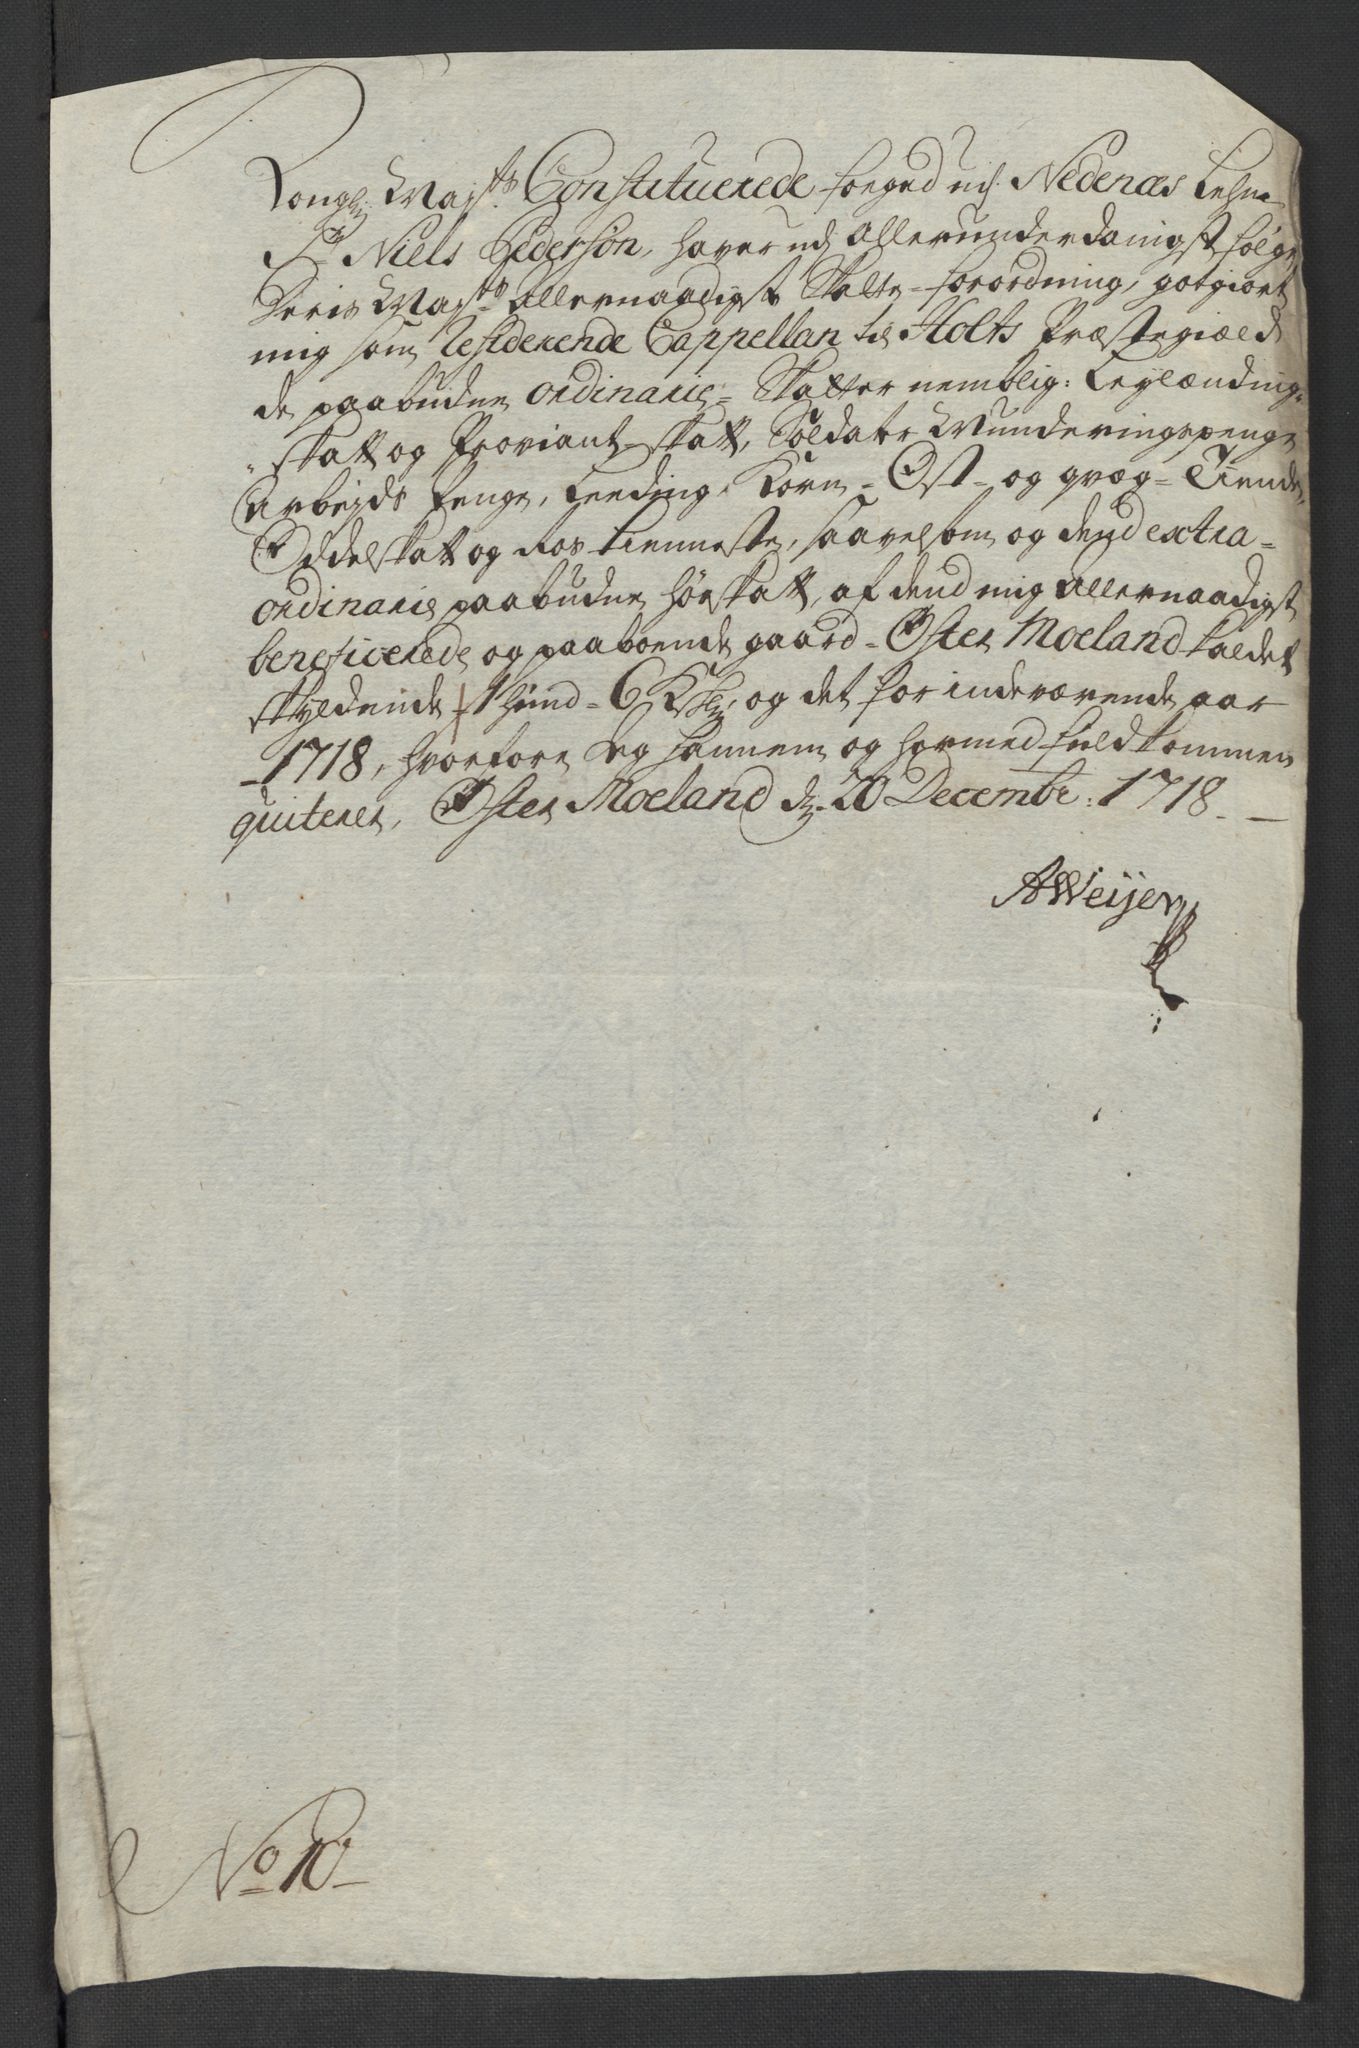 Kongl: Mayst:ts Constituerede foeged ud: Nedenæs Lehn
Sr Niels Pedersøn, haver udj allerunderdanigst følge
Deris Mayts allernaadigste Skatte-forordning, gotgiort
mig som Residerende Cappellan til Holts Præstegiæld
de paabudne ordinarie- Skatter nemblig: Leylænding-
skatt og Proviant skatt, Soldate Munderingspenge
Arbejds Penge, Leeding, Korn- Ost- og qvæg- Tiende,
Oddelskatt og Ros tienneste, saavelsom og dend extra-
ordinarie paabudne skatt, af dend mig allernaadigst
beneficerede og paaboende gaard- Øster Moeland kaldet
skyldende 1 hund- 6 Ksk: og det for indeværende aar
-1718, hvorfore Jeg hannem og hermed fuldkommen
quiterer, Øster Moeland d: 20 Decembr: 1718.-
AWeijer
No 10